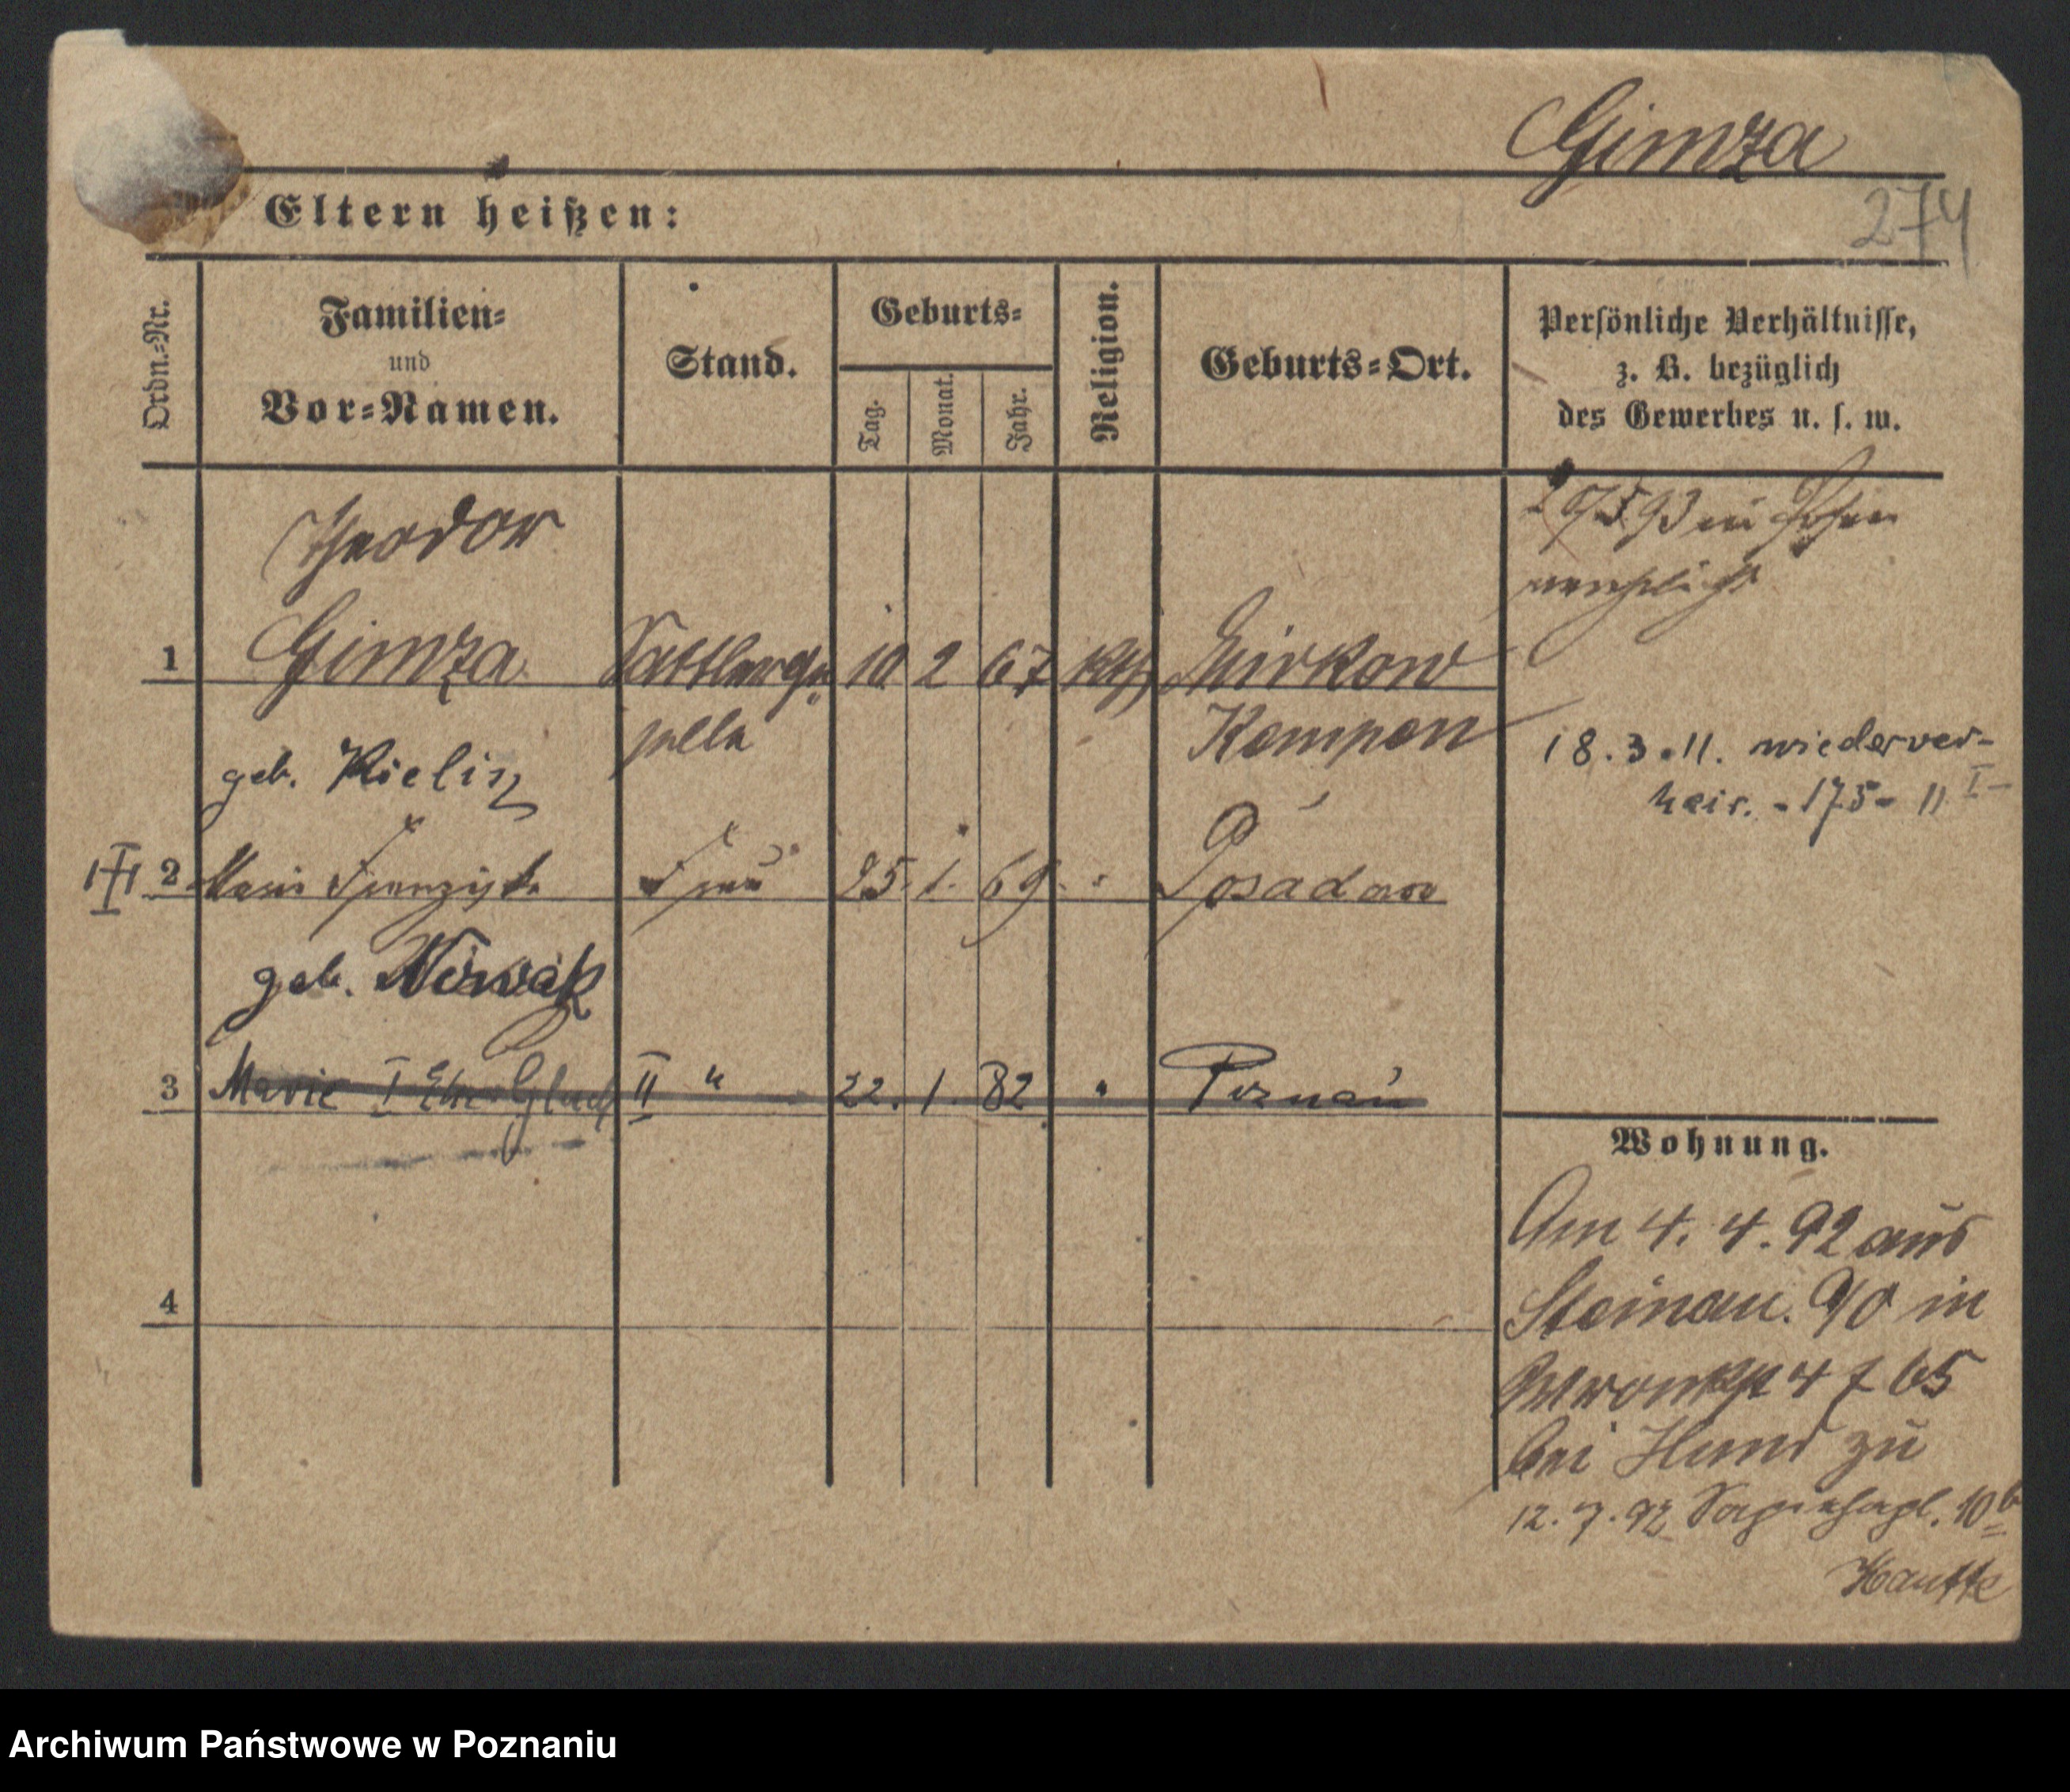 Gimza
274
Eltern heißen:
Ordn.-Nr.
Familien-
und
Vor-Namen.
Stand.
Geburts-
Tag.
Monat.
Jahr.
Religion.
Geburts-Ort.
Persönliche Verhältnisse,
z. B. bezüglich
des Gewerbes u. s. w.
Theodor
93 in Posen
verehelicht
1 Gimza Sattlerge 10 2 67 kth Mirkow
selle
Kempen
geb. Kieliz
18.3.11. wiederver-
heir. - 175 - 11 I
2 Marie Franziska Frau 25. 1. 69 Posadowo
geb. Nowak
3 Marie I Ehe II " 22. 1. 82 " Poznań
4
Wohnung.
Am 4. 4. 92 aus
Steinau a/O in
65
bei Hund zu
12. 7. 92 10b
Archiwum Państwowe w Poznaniu